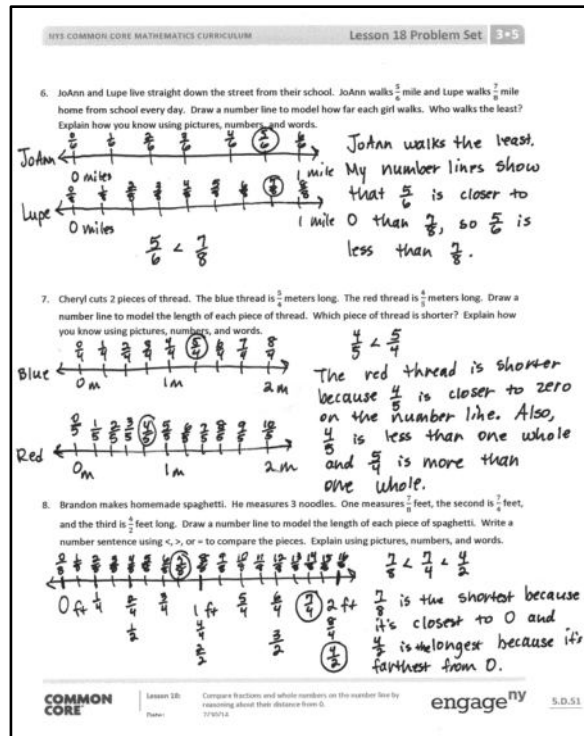 NYS COMMON CORE MATHEMATICS CURRICULUM Lesson 18 Problem Set 3•5
6. JoAnn and Lupe live straight down the street from their school. JoAnn walks 5/6 mile and Lupe walks 7/8 mile
home from school every day. Draw a number line to model how far each girl walks. Who walks the least?
Explain how you know using pictures, numbers, and words.
0/6 1/6 2/6 3/6 4/6 5/6 6/6
JoAnn
0 miles 1 mile
0/8 1/8 2/8 3/8 4/8 5/8 6/8 7/8 8/8
Lupe
0 miles 1 mile
5/6 < 7/8
JoAnn walks the least.
My number lines show
that 5/6 is closer to
0 than 7/8, so 5/6 is
less than 7/8.
7. Cheryl cuts 2 pieces of thread. The blue thread is 5/4 meters long. The red thread is 4/5 meters long. Draw a
number line to model the length of each piece of thread. Which piece of thread is shorter? Explain how
you know using pictures, numbers, and words.
0/4 1/4 2/4 3/4 4/4 5/4 6/4 7/4 8/4
Blue
0 m 1 m 2 m
0/5 1/5 2/5 3/5 4/5 5/5 6/5 7/5 8/5 9/5 10/5
Red
0 m 1 m 2 m
4/5 < 5/4
The red thread is shorter
because 4/5 is closer to zero
on the number line. Also,
4/5 is less than one whole
and 5/4 is more than
one whole.
8. Brandon makes homemade spaghetti. He measures 3 noodles. One measures 7/8 feet, the second is 7/4 feet,
and the third is 4/2 feet long. Draw a number line to model the length of each piece of spaghetti. Write a
number sentence using <, >, or = to compare the pieces. Explain using pictures, numbers, and words.
0/8 1/8 2/8 3/8 4/8 5/8 6/8 7/8 8/8 9/8 10/8 11/8 12/8 13/8 14/8 15/8 16/8
0 ft 1/4 2/4 3/4 1 ft 5/4 6/4 7/4 2 ft
4/4 8/4
1/2 2/2 3/2 4/2
7/8 < 7/4 < 4/2
7/8 is the shortest because
it's closest to 0 and
4/2 is the longest because it's
farthest from 0.
COMMON CORE
Lesson 18: Compare fractions and whole numbers on the number line by
reasoning about their distance from 0.
engage ny
5.D.51